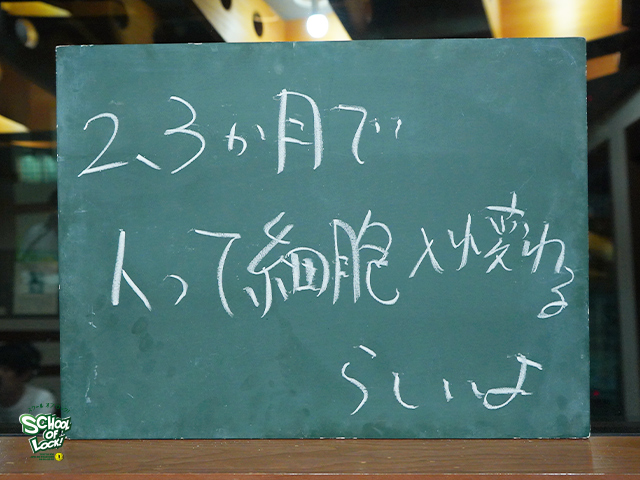 2、3か月で
人って細胞入れ変わる
らしいよ
SCHOOL
OF
LOCK!